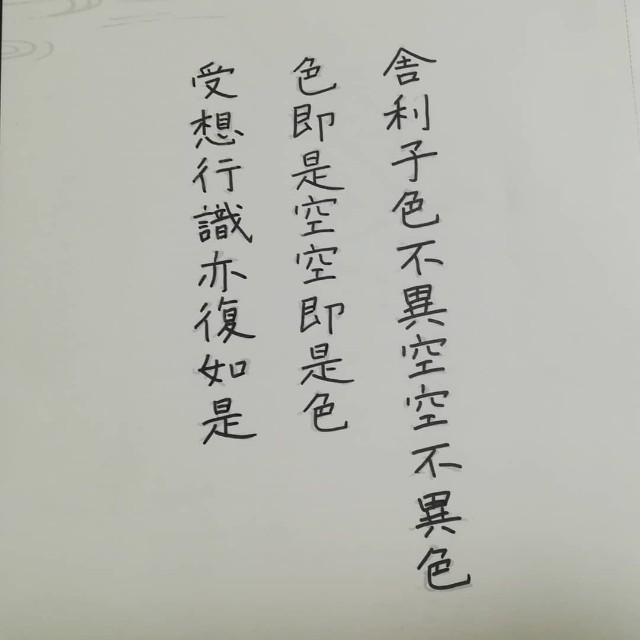 舎利子色不異空空不異色
色即是空空即是色
受想行識亦復如是